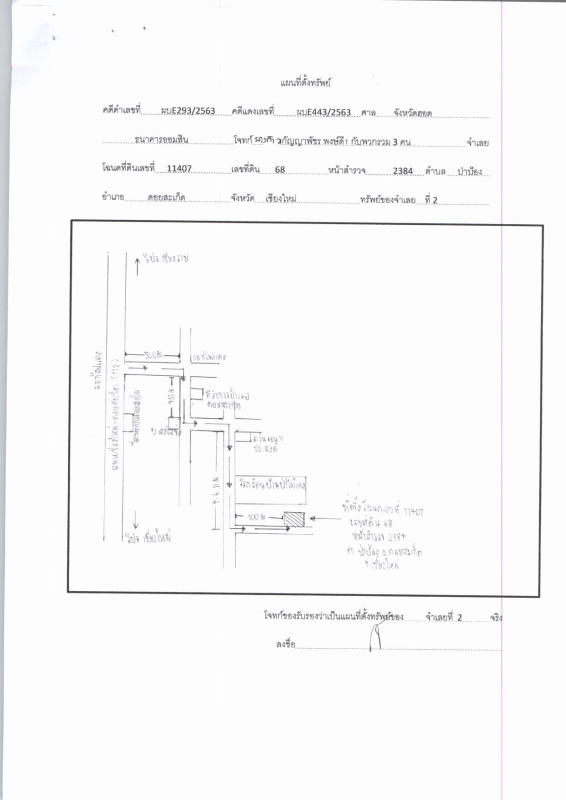 แผนที่ตั้งทรัพย์
คดีดำเลขที่ ผบE293/2563 คดีแดงเลขที่ ผบE443/2563 ศาล จังหวัดฮอด
ธนาคารออมสิน โจทก์ กัญญาพัชร พงษ์ดี กับพวกรวม 3 คน จำเลย
โฉนดที่ดินเลขที่ 11407 เลขที่ดิน 68 หน้าสำรวจ 2384 ตำบล ป่าป้อง
อำเภอ ดอยสะเก็ด จังหวัด เชียงใหม่ ทรัพย์ของจำเลย ที่ 2
ไปจ.เชียงราย
500 ม
แยกไฟแดง
ที่ว่าการอำเภอ
ดอยสะเก็ด
โรงเรียนบ้านป่าไม้แดง
100 ม
ที่ตั้งโฉนดเลขที่ 11407
เลขที่ดิน 68
หน้าสำรวจ 2384
ต. ป่าป้อง อ.ดอยสะเก็ด
จ.เชียงใหม่
ไปจ.เชียงใหม่
โจทก์ขอรับรองว่าเป็นแผนที่ตั้งทรัพย์ของ จำเลยที่ 2 จริง
ลงชื่อ